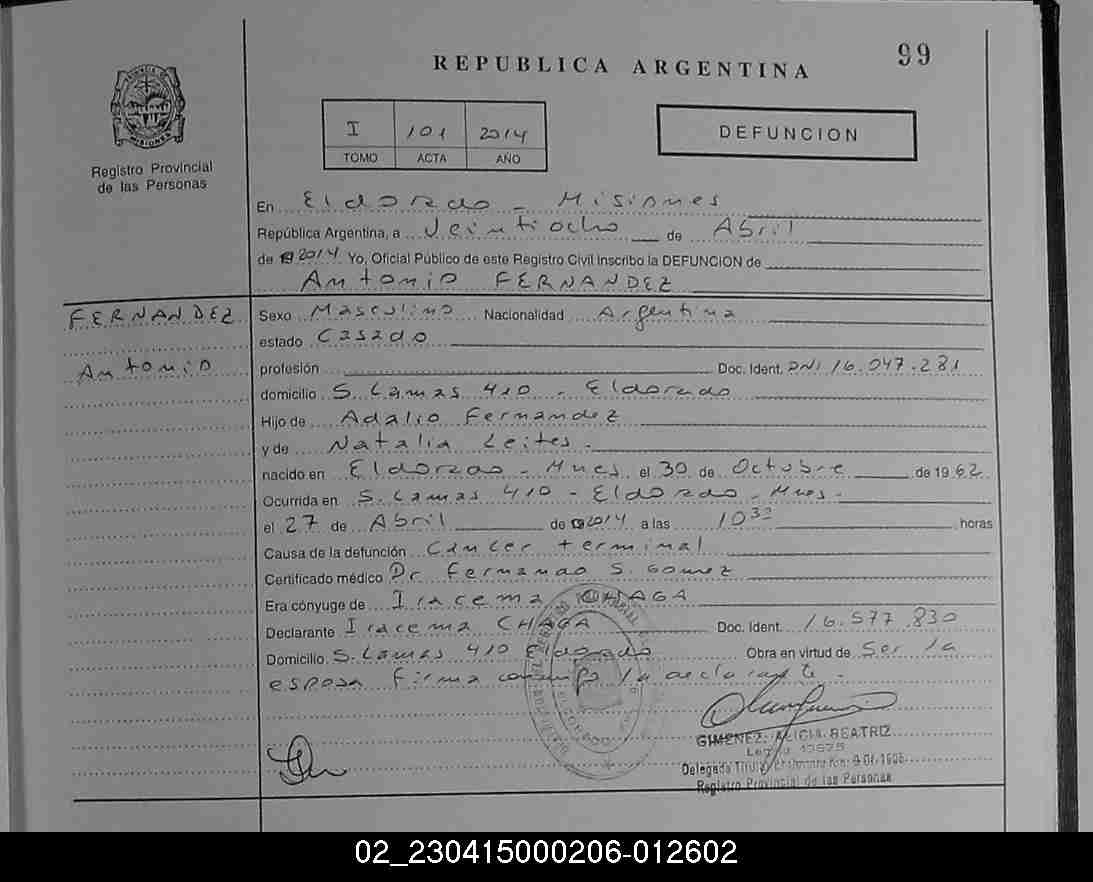 99
REPUBLICA ARGENTINA
I 101 2014
TOMO ACTA AÑO
DEFUNCION
Registro Provincial
de las Personas
En Eldorado - Misiones
República Argentina, a Veintiocho de Abril
de 2014 Yo, Oficial Público de este Registro Civil inscribo la DEFUNCION de
Antonio FERNANDEZ
FERNANDEZ
Antonio
Sexo Masculino Nacionalidad Argentina
estado Casado
profesión Doc. Ident. DNI 16.047.281
domicilio S. Lamas 410 - Eldorado
Hijo de Adalio Fernandez
y de Natalia Leites.-
nacido en Eldorado - Mnes el 30 de Octubre de 1962
Ocurrida en S. Lamas 410 - Eldorado - Mnes.-
el 27 de Abril de 2014 a las 10 30 horas
Causa de la defunción Cáncer terminal
Certificado médico Dr Fernando S. Gomez
Era cónyuge de Iracema CHAGA
Declarante Iracema CHAGA Doc. Ident. 16.577.830
Domicilio S. Lamas 410 Eldorado Obra en virtud de Ser la
esposa firma conmigo la declarante.-
GIMENEZ, ALICIA BEATRIZ
Delegada Titular
Registro Provincial de las Personas
02_230415000206-012602